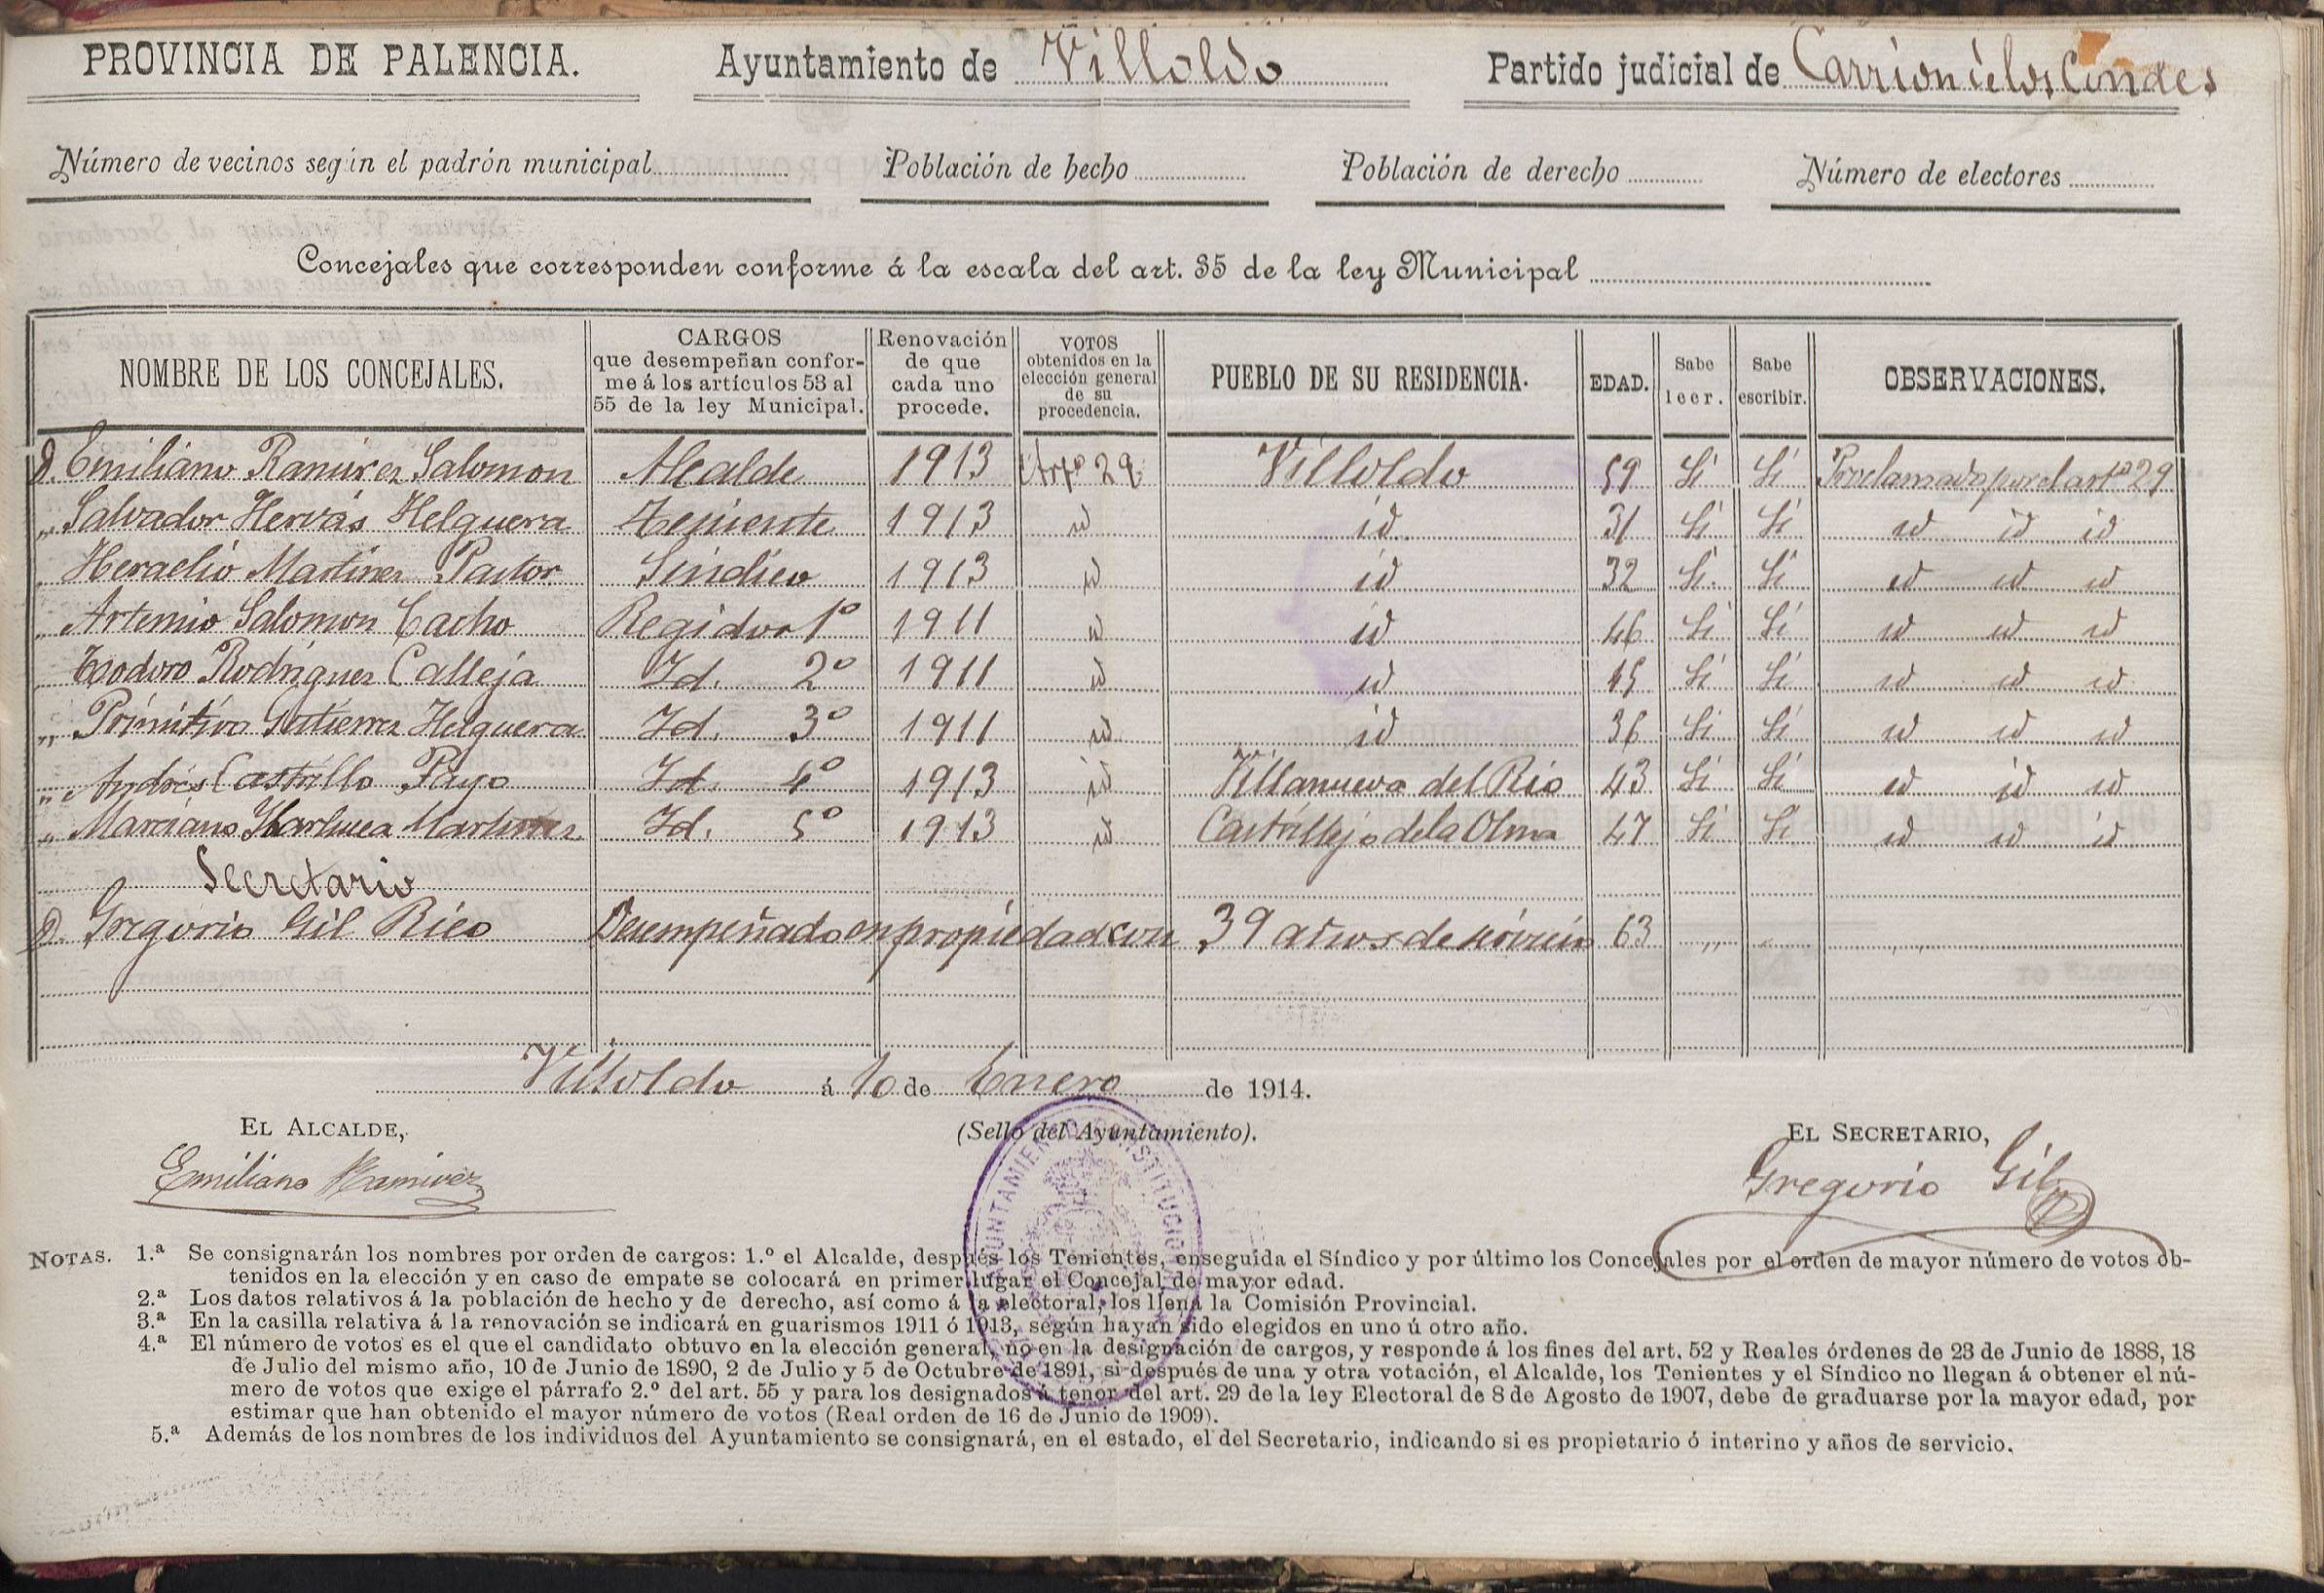 PROVINCIA DE PALENCIA. Ayuntamiento de Villoldo Partido judicial de Carrion de los Condes
Número de vecinos según el padrón municipal Población de hecho Población de derecho Número de electores
Concejales que corresponden conforme á la escala del art. 35 de la ley Municipal
NOMBRE DE LOS CONCEJALES. CARGOS que desempeñan conforme á los artículos 53 al 55 de la ley Municipal. Renovación de que cada uno procede. VOTOS obtenidos en la elección general de su procedencia. PUEBLO DE SU RESIDENCIA. EDAD. Sabe leer. Sabe escribir. OBSERVACIONES.
D. Emiliano Ramirez Salomon Alcalde 1913 Artº 29 Villoldo 59 Si Si Proclamado por el artº 29
„ Salvador Hervás Helguera Teniente 1913 id id 31 Si Si id id id
„ Heraclio Martinez Pastor Sindico 1913 id id 32 Si Si id id id
„ Artemio Salomon Cacho Regidor 1º 1911 id id 46 Si Si id id id
Teodoro Rodriguez Calleja Id. 2º 1911 id id 45 Si Si id id id
„ Primitivo Gutierrez Helguera Id. 3º 1911 id id 36 Si Si id id id
„ Andrés Castrillo Payo Id. 4º 1913 id Villanueva del Rio 43 Si Si id id id
„ Marciano Martinez Id. 5º 1913 id Castrillejo de la Olma 47 Si Si id id id
Secretario
D. Gregorio Gil Rico Desempeñado en propiedad con 39 años de servicio 63 „ „
Villoldo á 10 de Enero de 1914.
EL ALCALDE, (Sello del Ayuntamiento). EL SECRETARIO,
Emiliano Ramirez Gregorio Gil
NOTAS. 1.ª Se consignarán los nombres por orden de cargos: 1.º el Alcalde, después los Tenientes, enseguida el Síndico y por último los Concejales por el orden de mayor número de votos ob-
tenidos en la elección y en caso de empate se colocará en primer lugar el Concejal de mayor edad.
2.ª Los datos relativos á la población de hecho y de derecho, así como á la electoral, los llena la Comisión Provincial.
3.ª En la casilla relativa á la renovación se indicará en guarismos 1911 ó 1913, según hayan sido elegidos en uno ú otro año.
4.ª El número de votos es el que el candidato obtuvo en la elección general, no en la designación de cargos, y responde á los fines del art. 52 y Reales órdenes de 23 de Junio de 1888, 18
de Julio del mismo año, 10 de Junio de 1890, 2 de Julio y 5 de Octubre de 1891, si después de una y otra votación, el Alcalde, los Tenientes y el Síndico no llegan á obtener el nú-
mero de votos que exige el párrafo 2.º del art. 55 y para los designados á tenor del art. 29 de la ley Electoral de 8 de Agosto de 1907, debe de graduarse por la mayor edad, por
estimar que han obtenido el mayor número de votos (Real orden de 16 de Junio de 1909).
5.ª Además de los nombres de los individuos del Ayuntamiento se consignará, en el estado, el del Secretario, indicando si es propietario ó interino y años de servicio.